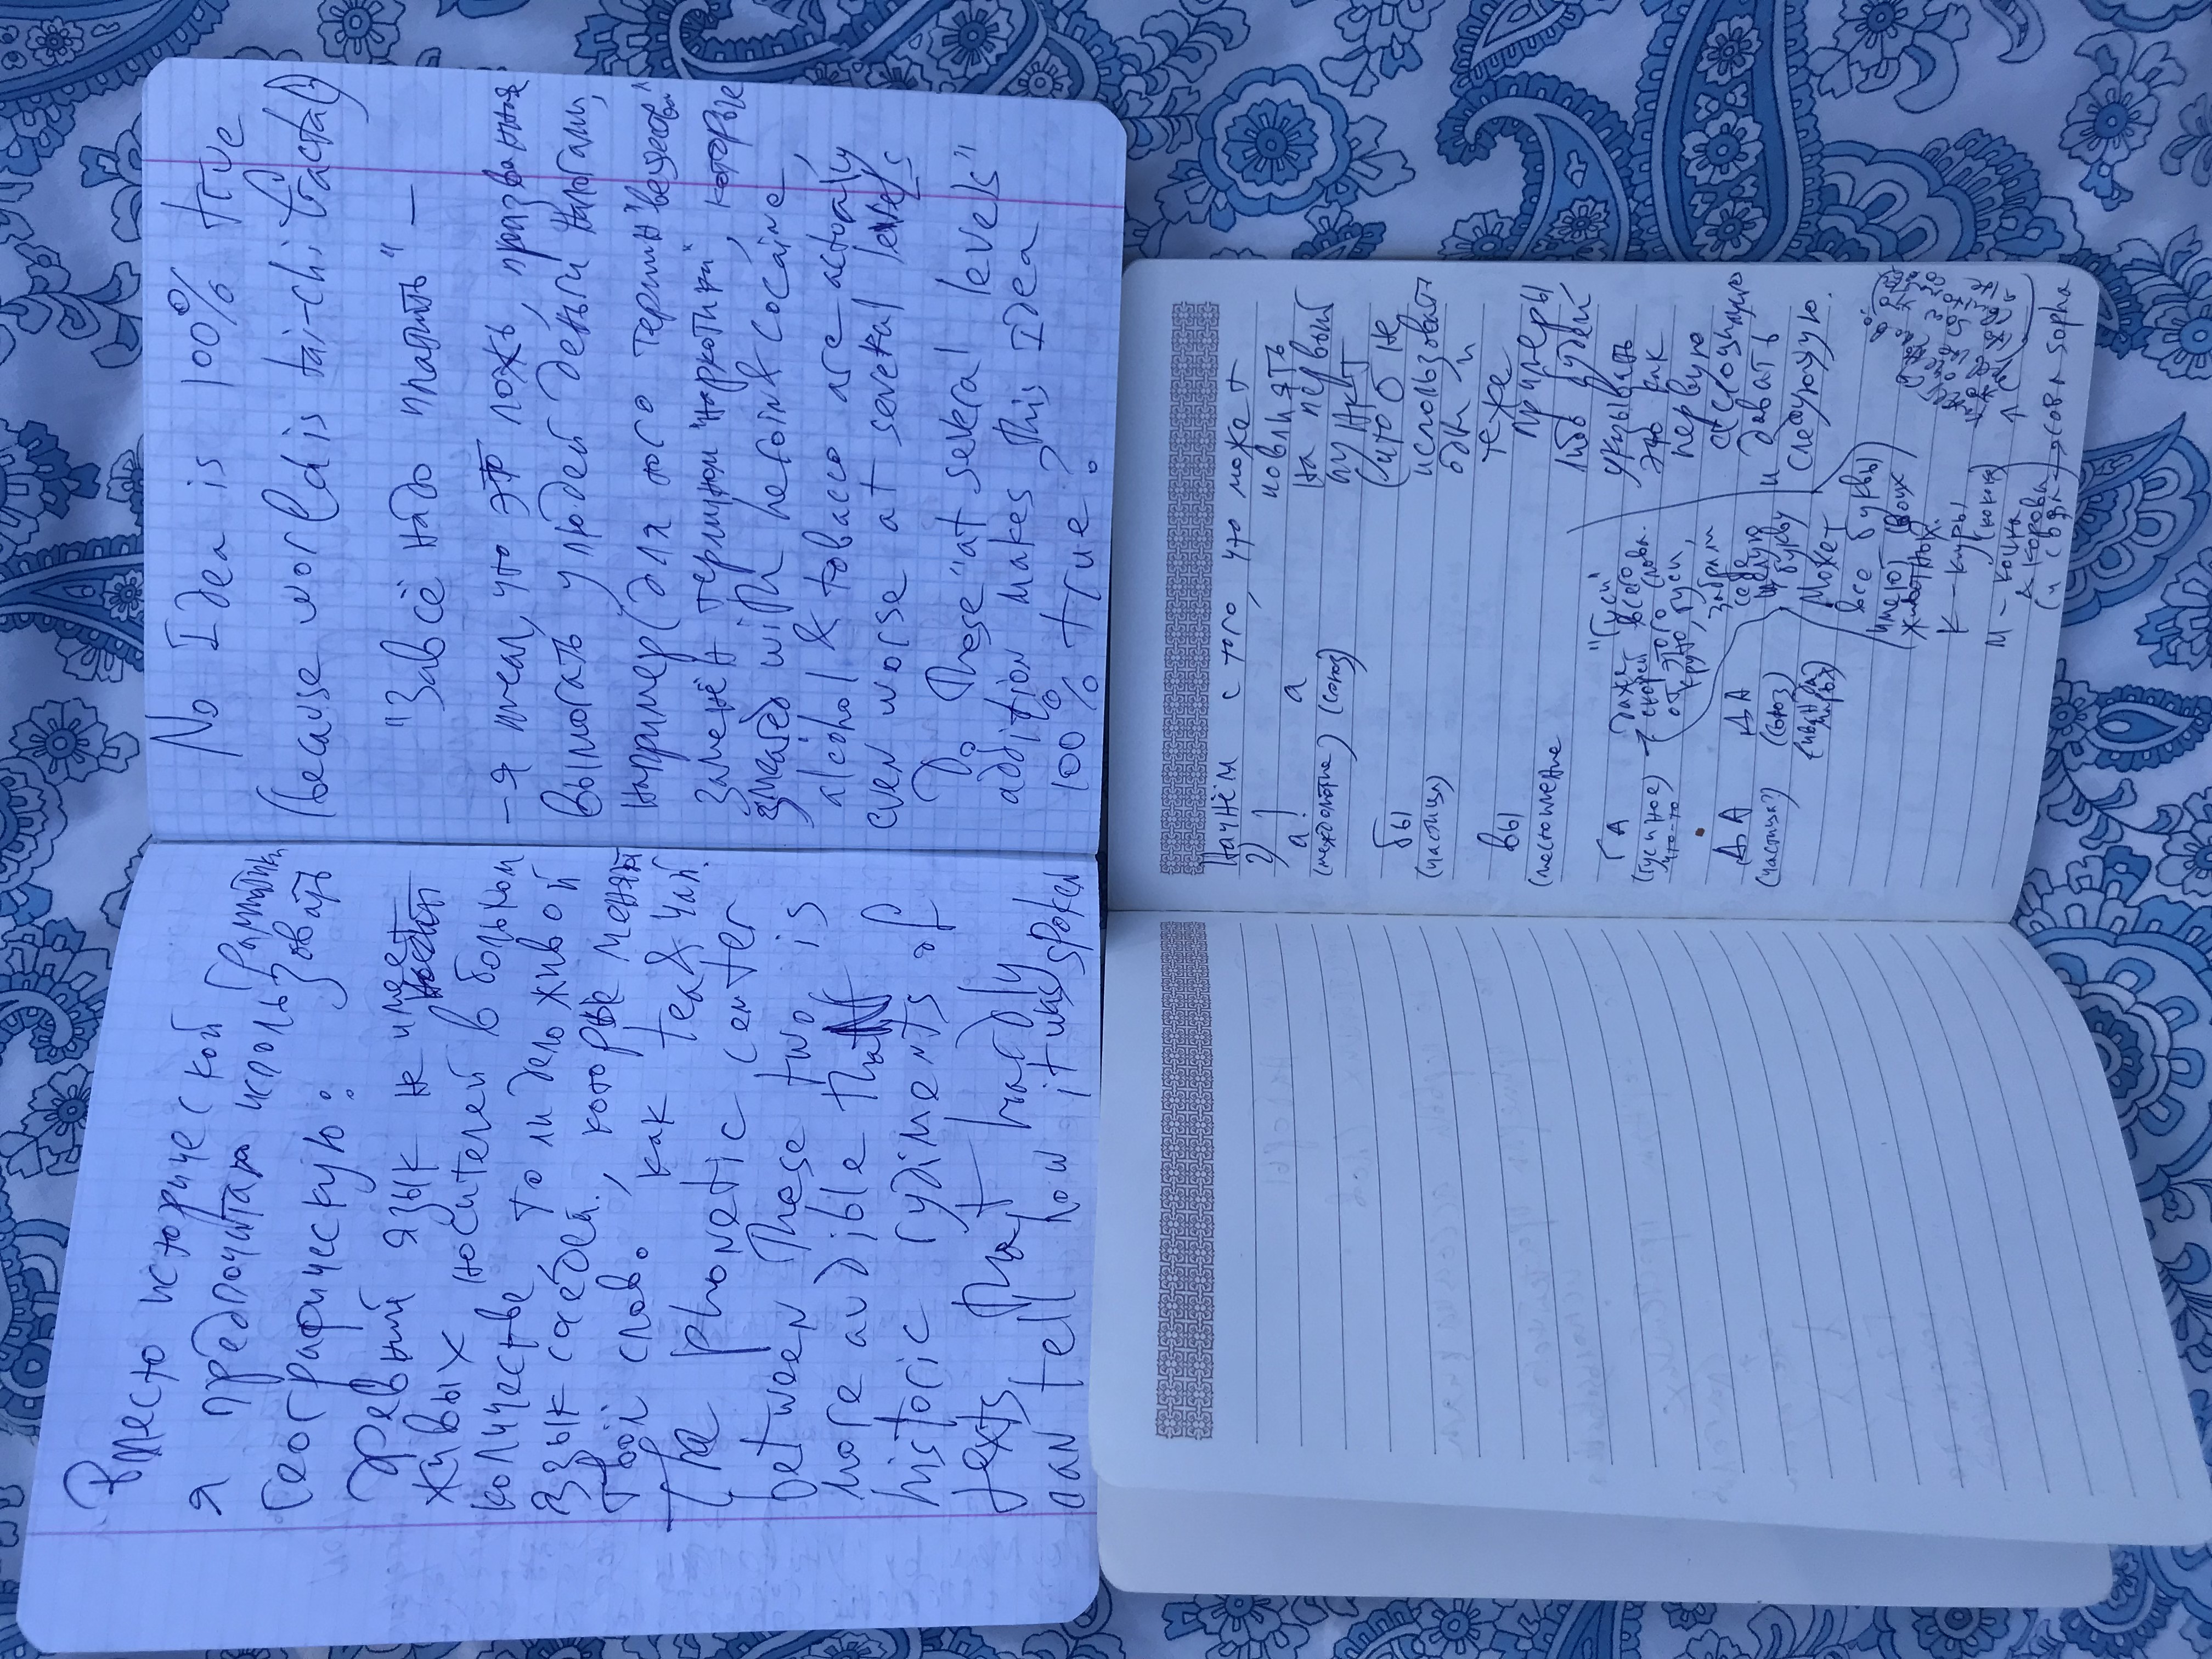 Вместо исторической грамматики
я предпочитаю использовать
географическую:
Древний язык не имеет
живых носителей в большом
количестве, то ли дело живой
язык соседей, которые меняют
твоё слово как tea & чай.
The phonetic center
between these two is
more audible than
historic rydiments of
texts that hardly
can tell how it was spoken
No Idea is 100% true
(because world is tai-chi fractal)
"За всё надо платить" —
— я писал, что это ложь, призванная
вымогать у людей деньги налогами,
например (для того термин "вещества"
заменён термином "наркотики", которые
smeared with heroin & cocaine,
alcohol & tobacco are actually
even worse at several levels
Do these "at several levels"
addition makes this Idea
100% true?
Начнём с того, что может
повлиять
на первый
пункт
(чтоб не
использовать
одни и
теже
примеры
либо будем
указывать
это как
первую
ассоциацию
и давать
следующую.
а! а
(междометие) (союз)
бы
(частица)
вы
(местоимение
ГА
(гусиное)
что-то
"Гуси"
даже
скорей всего
от этого слова.
круто, гуси,
забрали
себе
целую
букву
ДА ДА
(частица?) (союз)
(иван да
марья)
Может
все буквы
имеют своих
животных.
К – куры
(кокок)
М – кошка
& корова
(и сова → сова sopha
кажется
это очень
древнее слово.
(но sow это
свиноматка
а не сова)